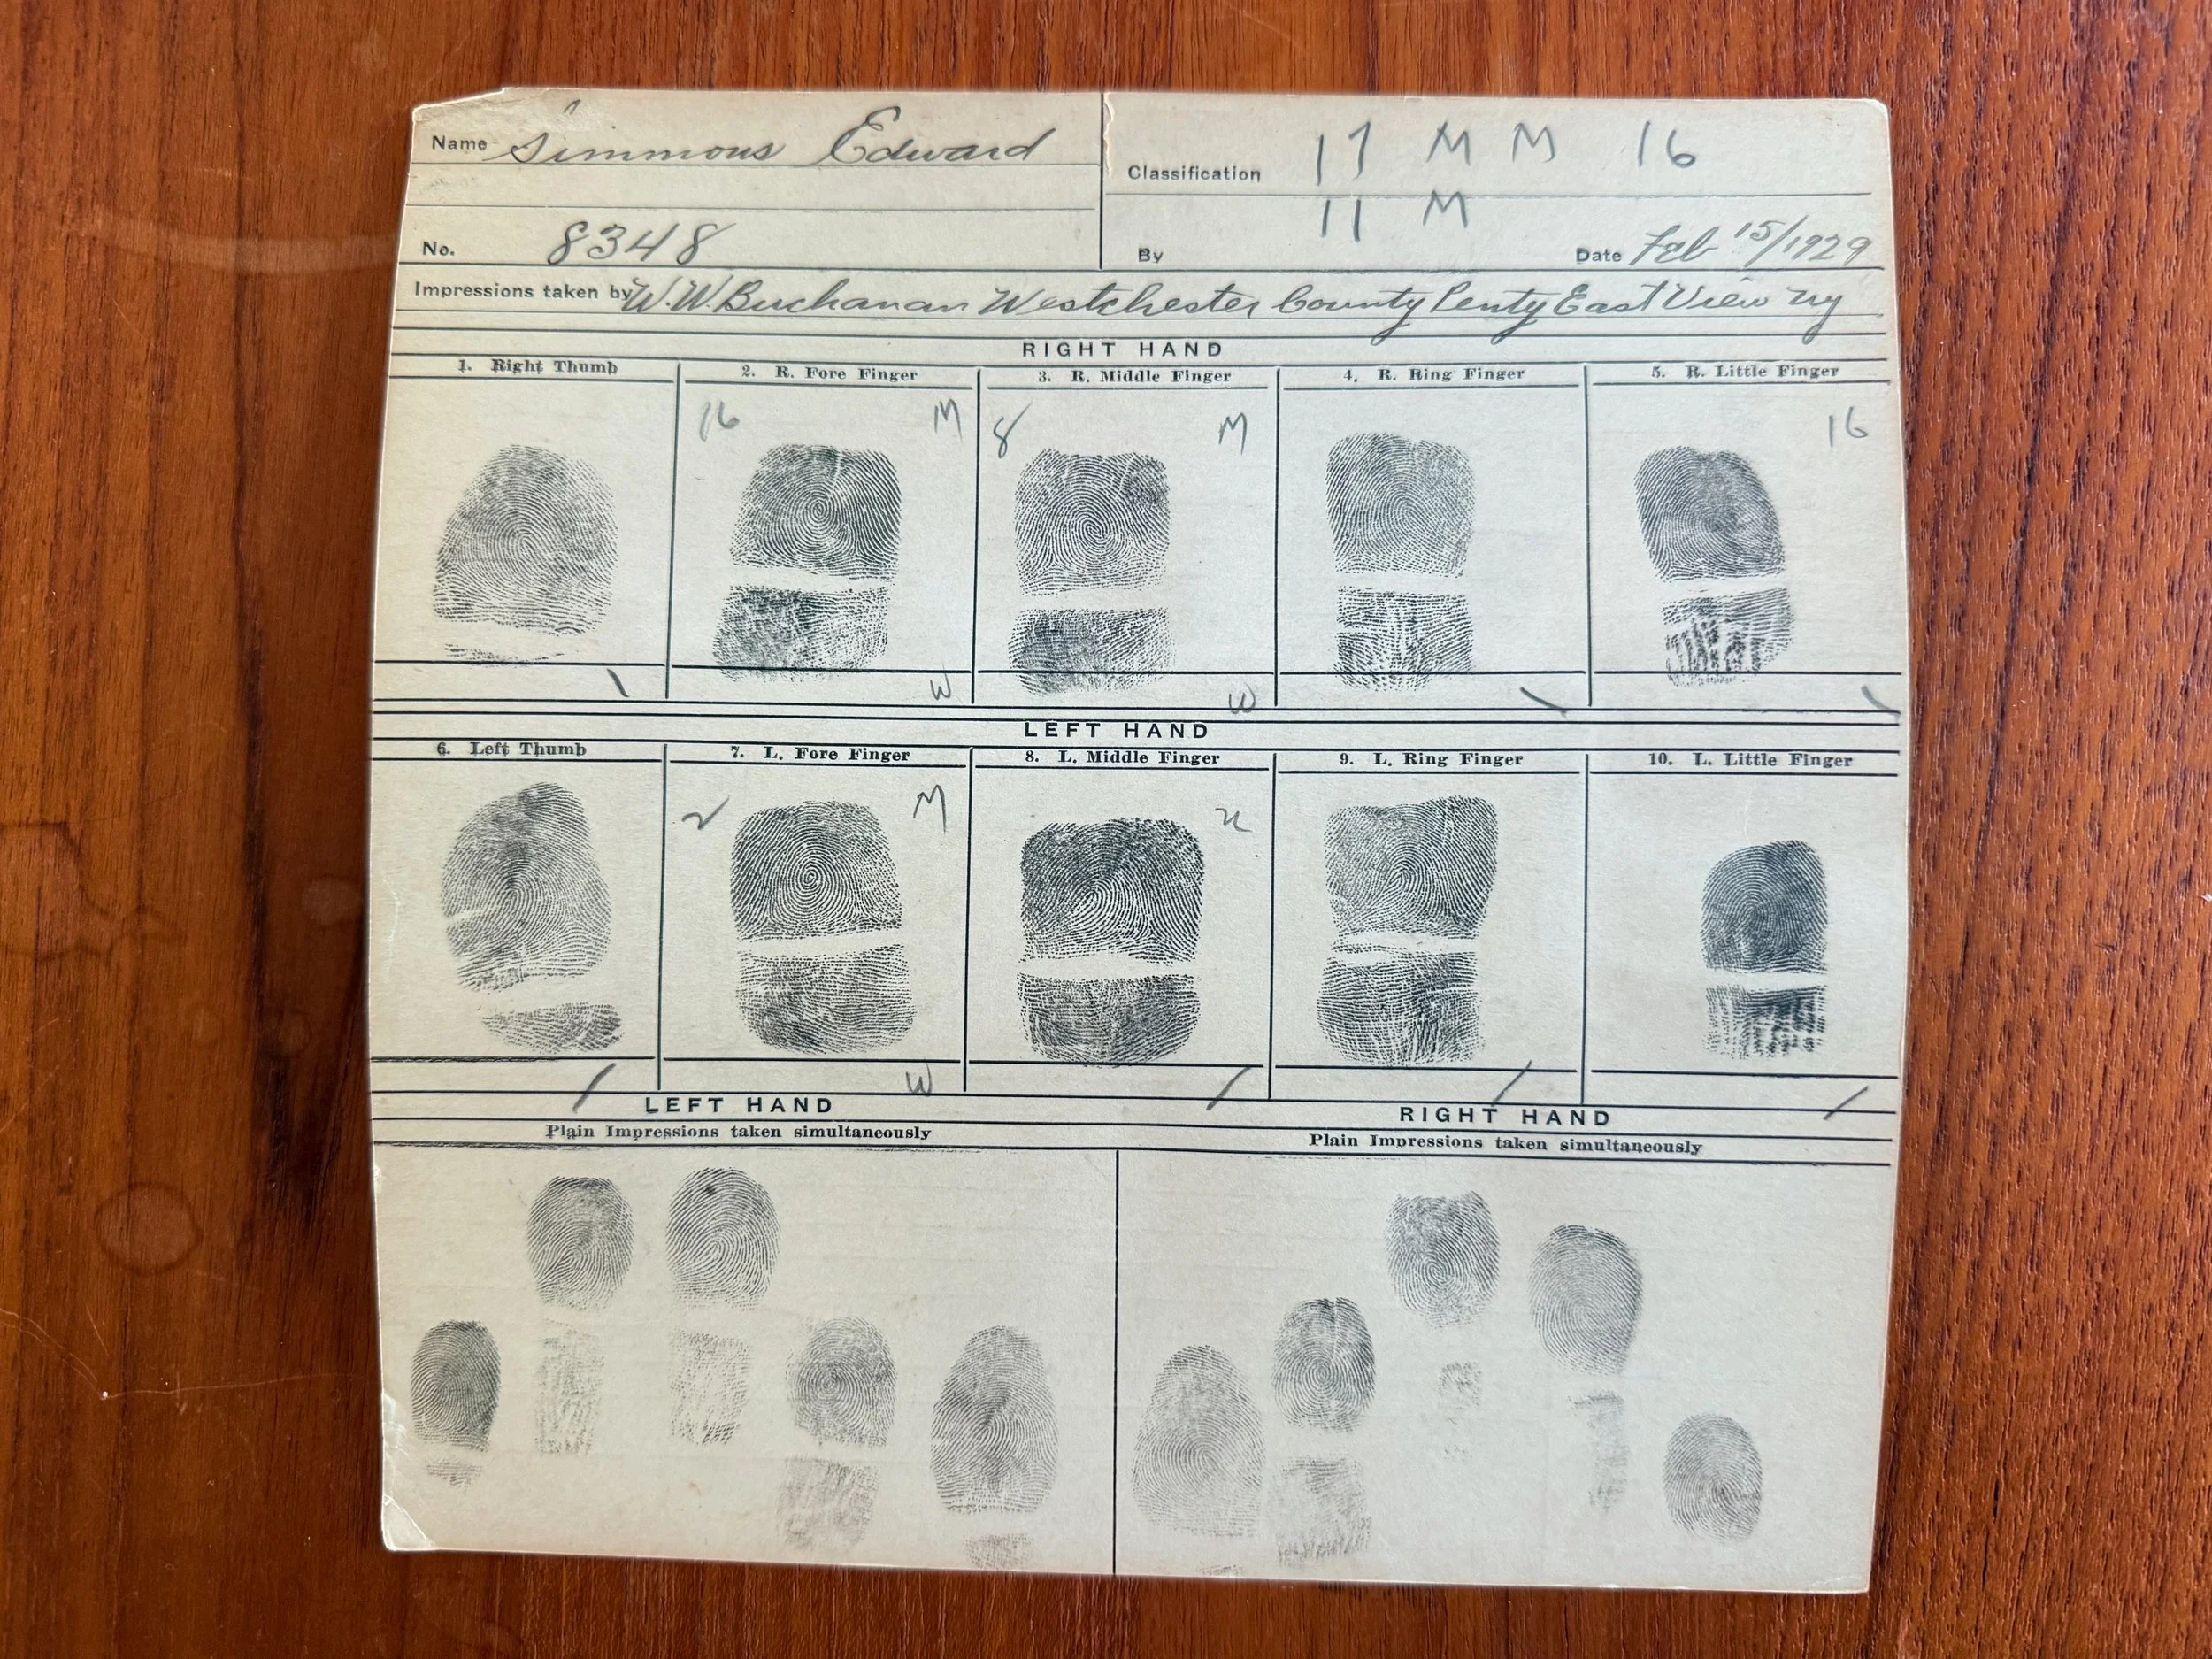 Name Simmons Edward
Classification 17 M M 16
11 M
No. 8348
By
Date Feb 15/1929
Impressions taken by W.W. Buchanan Westchester County Penty East View NY
RIGHT HAND
1. Right Thumb 2. R. Fore Finger 3. R. Middle Finger 4. R. Ring Finger 5. R. Little Finger
16 M 8 M 16
\ W W \ \
LEFT HAND
6. Left Thumb 7. L. Fore Finger 8. L. Middle Finger 9. L. Ring Finger 10. L. Little Finger
2 M
/ W / / /
LEFT HAND
Plain Impressions taken simultaneously
RIGHT HAND
Plain Impressions taken simultaneously